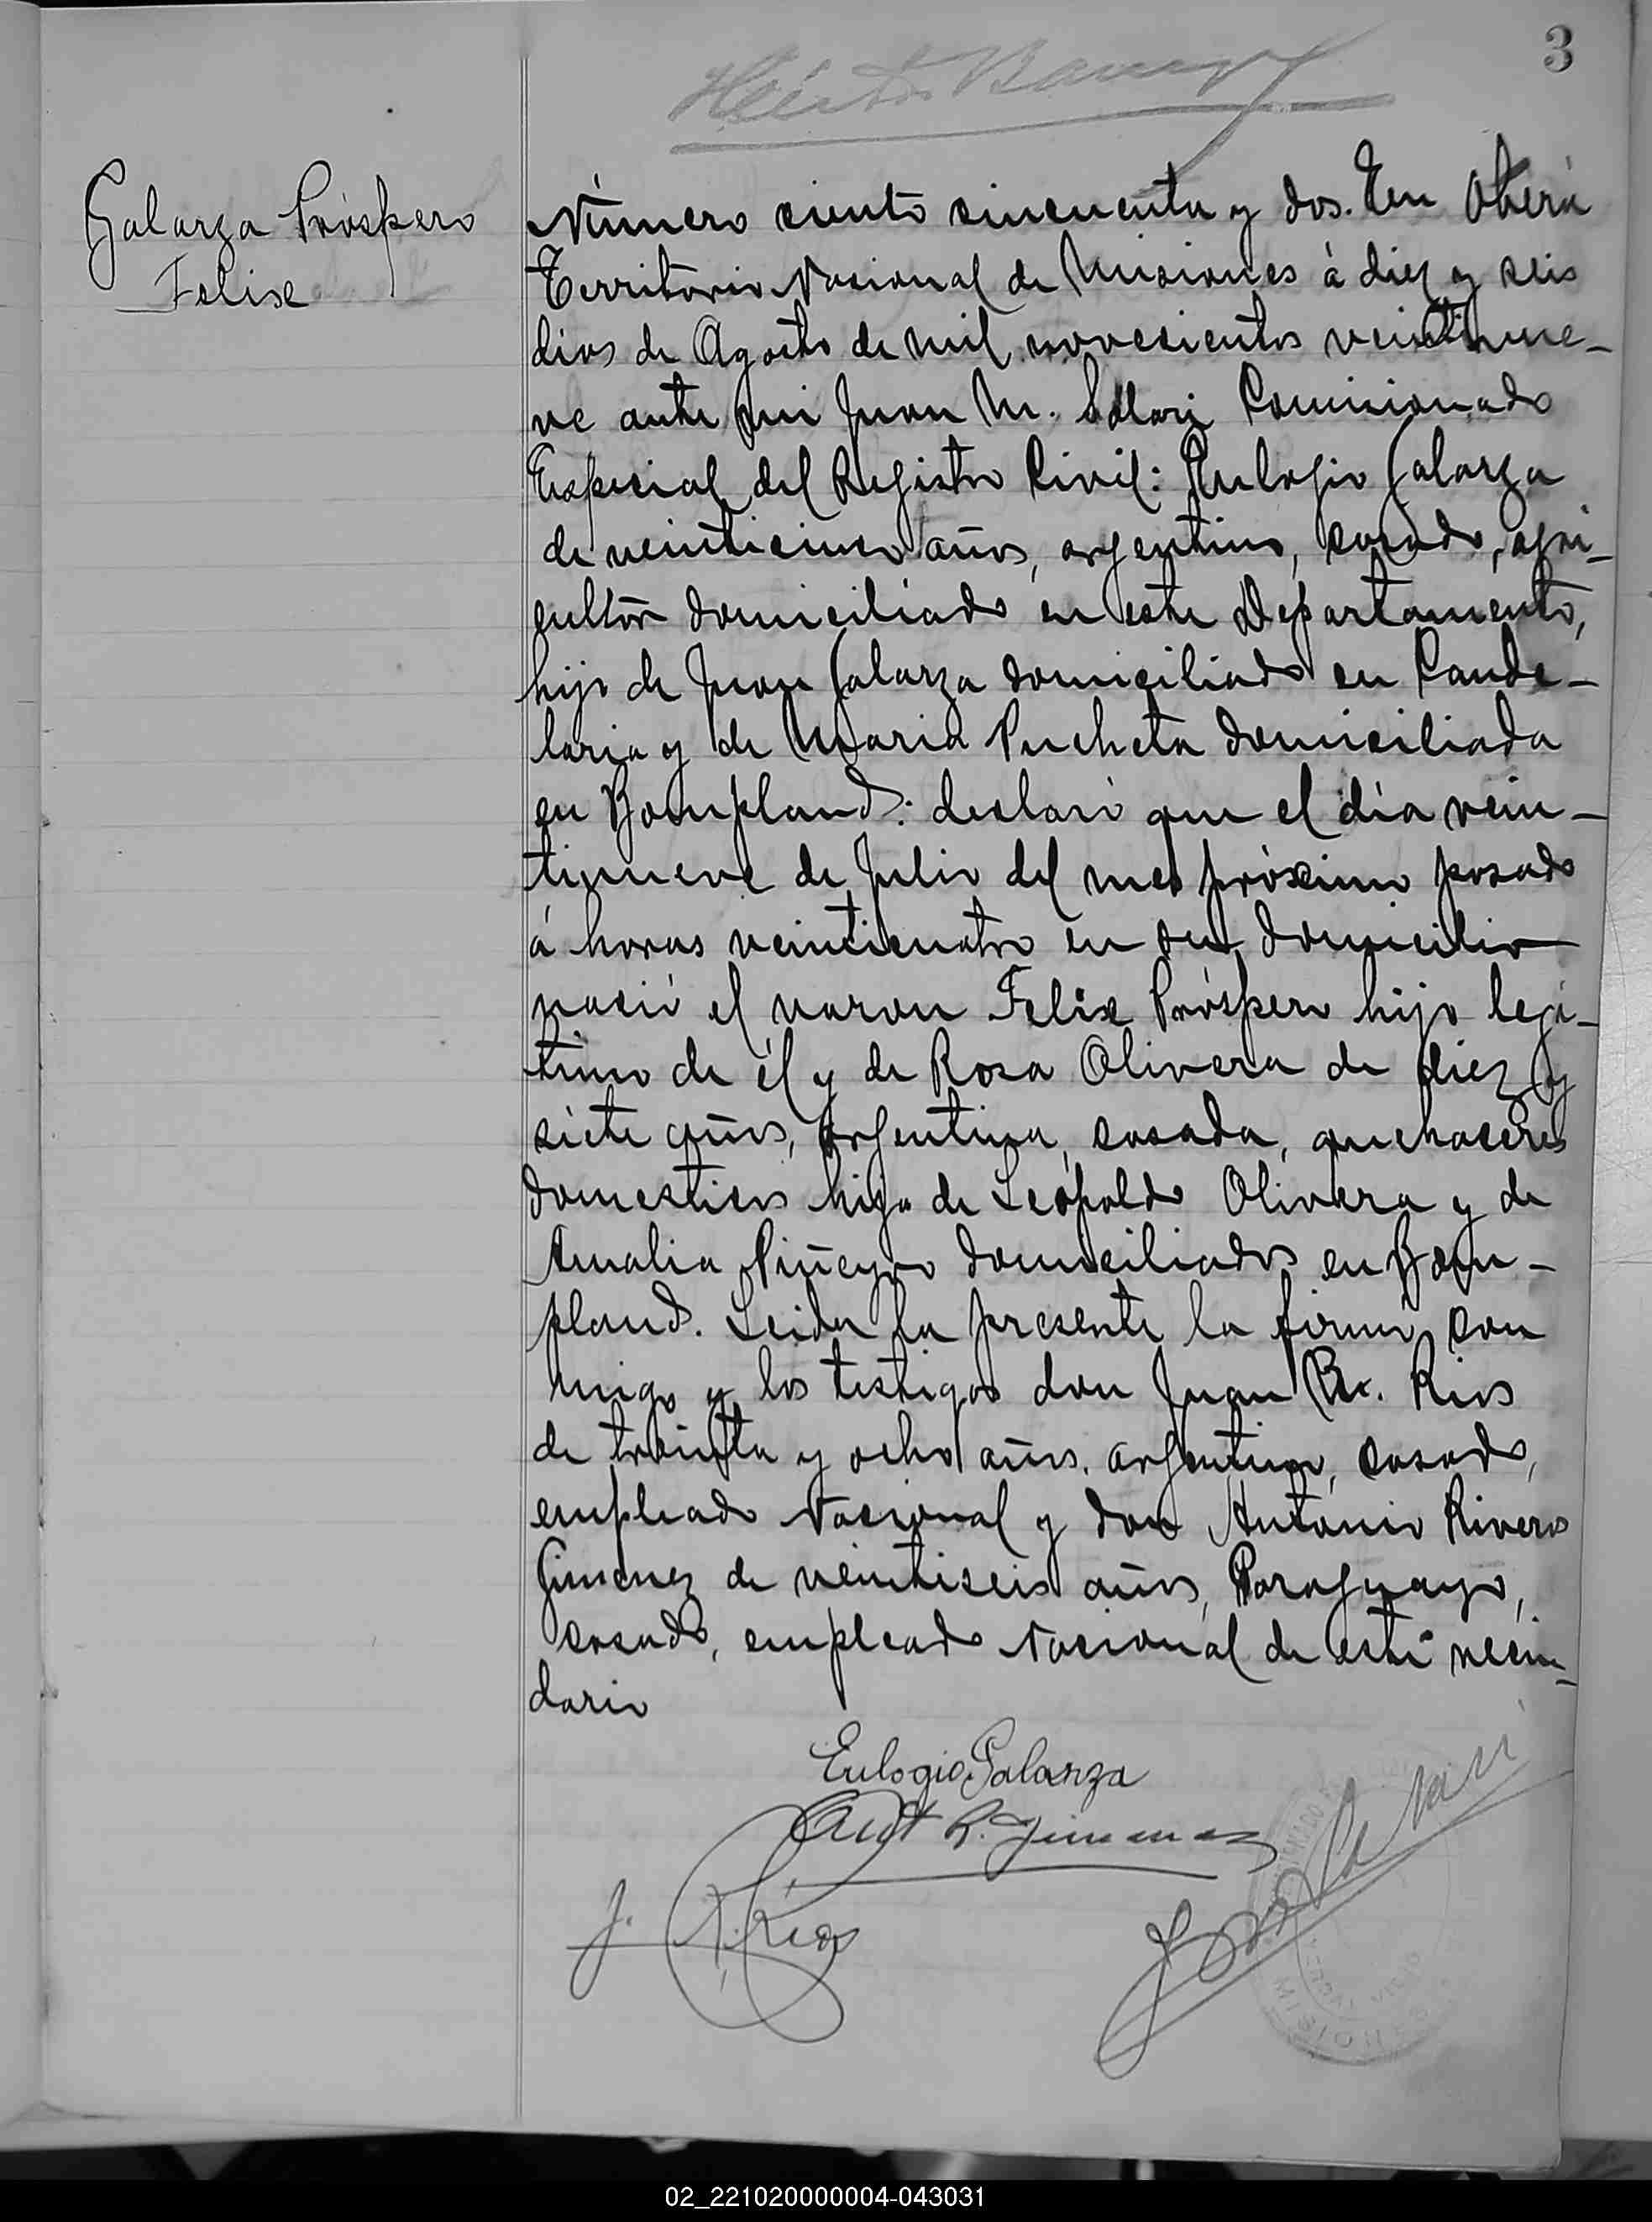 3
Galarza Próspero
Felise
Número ciento cincuenta y dos. En Oberá
Territorio Nacional de Misiones á diez y seis
dias de Agosto de mil novecientos veintinue-
ve ante mi Juan M. Comisionado
Especial del Registro Civil: Eulogio Galarza
de veinticinco años, argentino, casado, agri-
cultor domiciliado en este Departamento,
hijo de Juan Galarza domiciliado en Cande-
laria y de Maria Pucheta domiciliada
en Bompland: declaró que el dia vein-
tinueve de Julio del mes próximo pasado
á horas veinticuatro en su domicilio
nació el varon Felix Próspero hijo legi-
timo de él y de Rosa Olivera de diez y
siete años, argentina, casada, quehaceres
domesticos hija de Leopoldo Olivera y de
Amalia Piñeyro domiciliados en Bom-
pland. Leida la presente la firmó con
migo y los testigos don Juan Rios
de treinta y ocho años, argentino, casado,
empleado Nacional y don Antonio Rivero
Gimenez de veintiseis años, Paraguayo,
casado, empleado Nacional de este vecin-
dario
Eulogio Galarza
Ant R. Jimenez
J. Rios
MISIONES
02_221020000004-043031